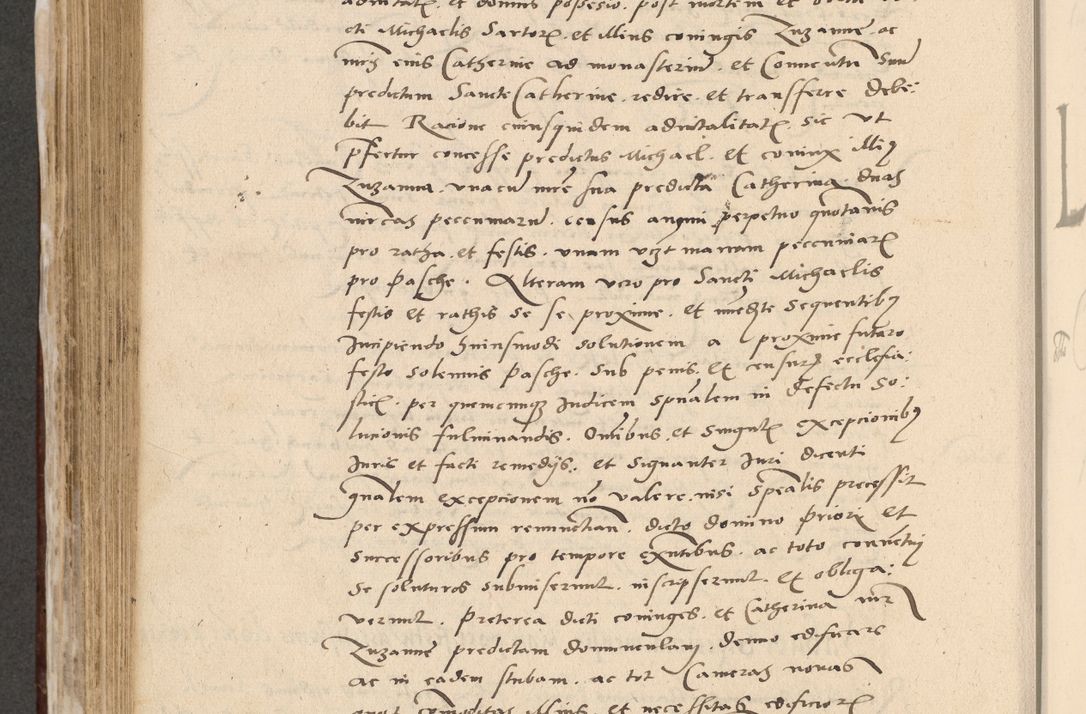 advitalitatem et domus possesio. post mortem et
cti Michaelis Sartoris. et illius coniugis Zuzanne. ac
mris eius Catherine ad monasterium. et Conventum suum
predictum Sancte Catherine. redire. et transferre debe:
bit Racione cuiusquidem advitalitatis. sic ut
prefertur concesse predictus Michael. et coniux illius
Zuzanna. unacum mre sua predicta Catherina. duas
mrcas pecuniarum. census annui perpetuo quotannis
pro ratha. et festis. unam vczt marcam pecuniarum
pro Pasche. Alteram vero pro Sancti Michaelis
festis et rathis se se proxime. et immediate sequentibus
Incipiendo huiusmodi solutionem a proxime futuro
festo solennis Pasche. sub penis. et censuris ecclesia:
sticis. per quemcunque Iudicem spualem in defectu so:
lucionis fulminandis. Omnibus et singulis excepcionibus
Iuris et facti remedys. et signanter Iuri dicenti
gnalem excepcionem non valere. nisi specialis precessit
per expressum renunctiam. dicto domino Priori et
successoribus pro tempore exntibus. ac toto conventui
se soluturos submiserunt. inscripserunt. et obliga:
verunt. Preterea dicti coniuges. et Catherina mr
Zuzanne predictam domunculam. denuo edificare
ac in eadem stubam. ac tot Cameras novas
quot comoditas illius. et necessitas edificiorum